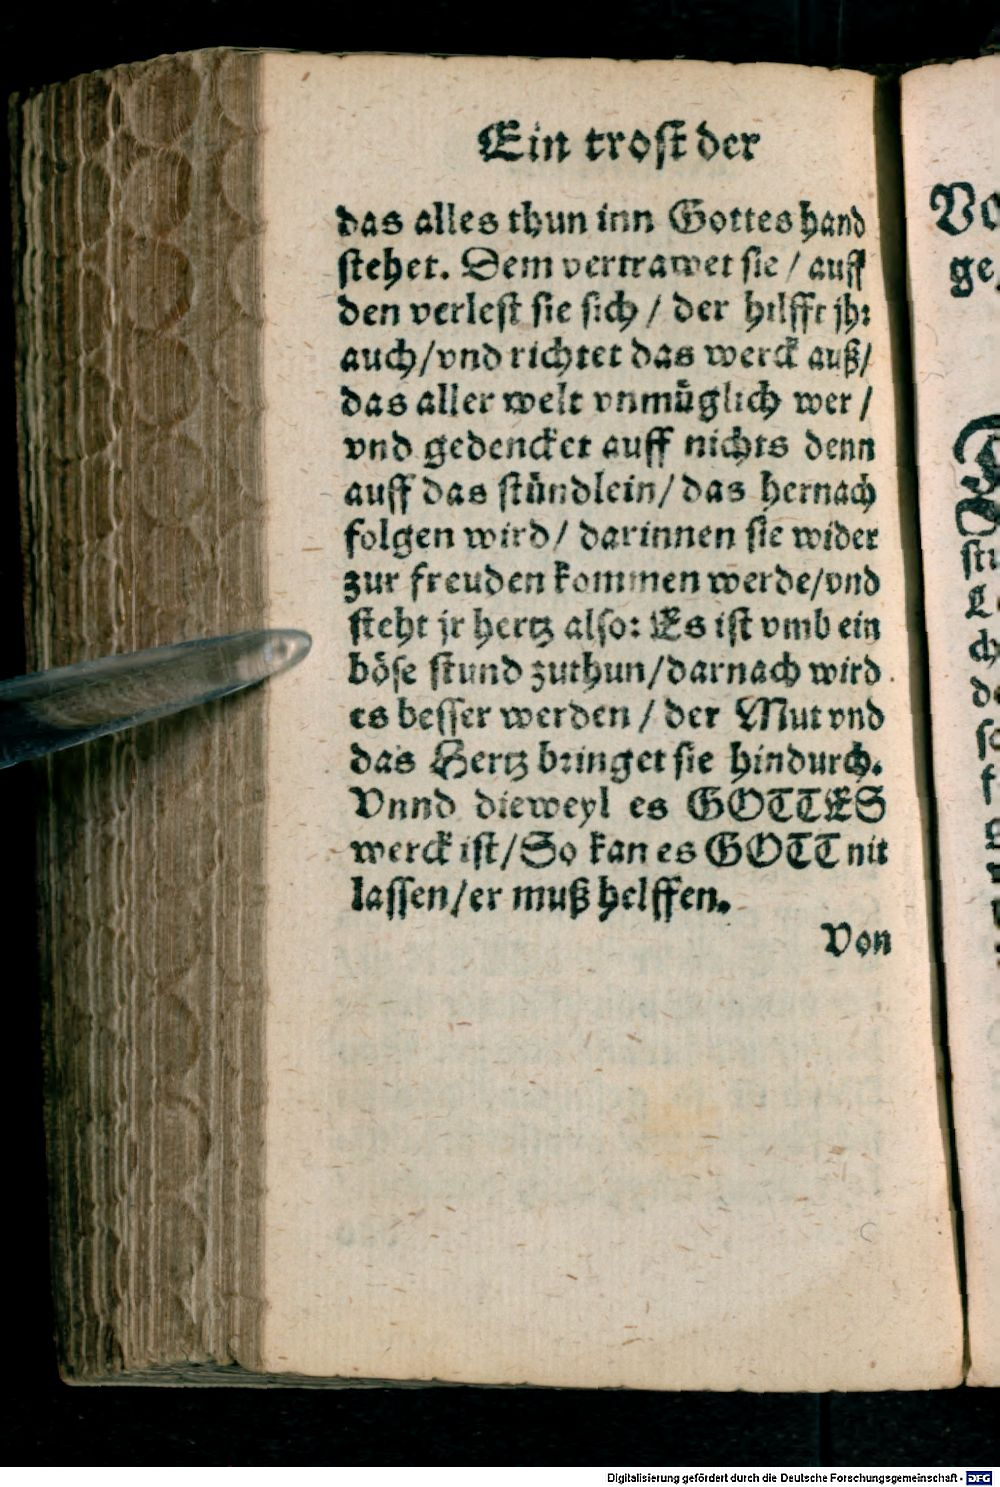 Ein trost der
das alles thun inn Gottes hand
stehet. Dem vertrawet sie / auff
den verlest sie sich / der hilfft jhr
auch/vnd richtet das werck auß/
das aller welt vnmüglich wer /
vnd gedencket auff nichts denn
auff das stündlein/ das hernach
folgen wird/ darinnen sie wider
zur freuden kommen werde/vnd
steht jr hertz also: Es ist vmb ein
böse stund zuthun/darnach wird
es besser werden / der Mut vnd
das Hertz bringet sie hindurch.
Vnnd dieweyl es GOTTES
werck ist/So kan es GOTT nit
lassen/er muß helffen.
Von
ge
Digitalisierung gefördert durch die Deutsche Forschungsgemeinschaft - DFG